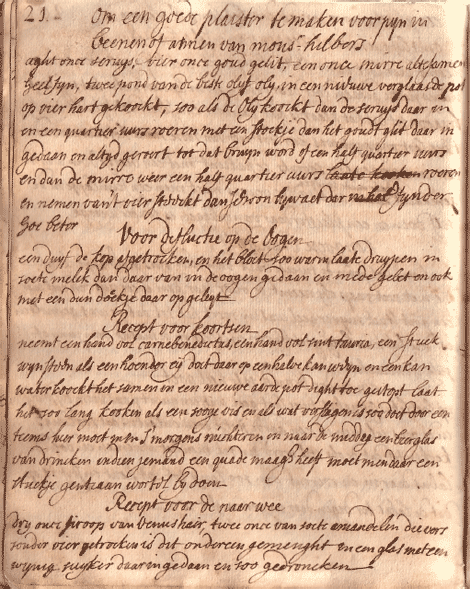 21. om een goede plaister te maken voor pyn in
beenen of armen van mons^r helbers
aght once seruys, vier once goud gelit, een once mirre altesamen
heel fyn, twee pond van de beste olyf oly, in een nieuwe verglaasde pot
op vier hart gekookt, soo als de oly koockt dan de seruys daar in
en een quartier uurs roeren met een stockje dan het goudt glit daar in
gedaan en altyd geroert tot dat bruyn word of een half quartier uurs
en dan de mirre weer een half quartier uurs roeren
en nemen van't vier stockt dan
hoe beter
Voor defluctie op de oogen
een duyf de kop afgetrocken, en het bloet soo warm laate druypen in
soete melck dan daar van in de oogen gedaan en mede gelet en ook
met een dun doekje daar op geleyt
Recept voor koortsen
neemt een hand vol carnebenedictus, een hand vol sint lauria, een stuck
wynsteen als een hoender ey doet daar op een halve kan wyn en een kan
water koockt het samen in een nieuwe aerde pot dight toe gestopt laat
het soo lang kooken als een sooye vis en als wat verslagen is soo doet door een
teems hier moet men s'morgens nughteren en naar de middag een bierglas
van drincken indien jemand een quade maagh heeft moet men daar een
stuckje gentiaan wortel by doen
Recept voor de naar wee
dry once siroop van venus hair, twee once van soete amandelen die vers
sonder vier getrocken is dit ondereen gemenght en in een glas met een
wynig suyker daar in gedaan en soo gedroncken